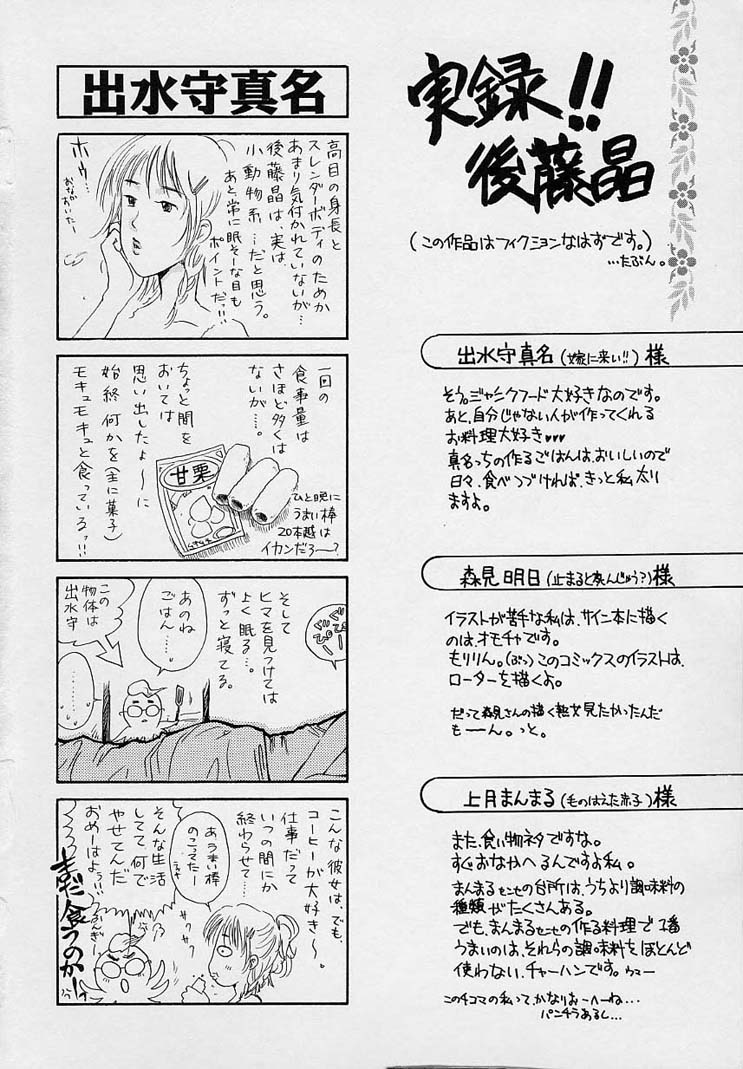 実録!!
後藤晶
(この作品はフィクションなはずです。)
…たぶん。
出水守真名(嫁に来い!!)様
そう。ジャンクフード大好きなのです。
あと、自分じゃない人が作ってくれる
お料理大好き♥♥♥
真名っちの作るごはんは、おいしいので
日々、食べつづければ、きっと私太り
ますよ。
森見明日(止まると死んじゅう?)様
イラストが苦手な私は、サイン本に描く
のは、オモチャです。
もりりん。(ぷっ)このコミックスのイラストは、
ローターを描くよ。
だって森見さんの描く熟女見たかったんだ
もーーん。っと。
上月まんまる(毛のはえた赤子)様
また、食い物ネタですな。
すぐおなかへるんですよ私。
まんまるセンセの台所は、うちより調味料の
種類がたくさんある。
でも、まんまるセンセの作る料理で1番
うまいのは、それらの調味料をほとんど
使わない、チャーハンです。ウマー
この4コマの私って、かなりおーへーね…
パンチラあるし…
出水守真名
高目の身長と
スレンダーボディのためか
あまり気付かれていないが…
後藤晶は、実は、
小動物系…だと思う。
あと、常に眠そーな目も
ポイントだっ!!
ホゥ…
おなかおいたー
一回の
食事量は
さほど多くは
ないが……。
ちょっと間を
おいては
思い出したよ〜に
始終何かを(主に菓子)
モキュモキュと食っているっ!!!
甘栗
ひと晩に
うまい棒
20本越は
イカンだろー?
そして
ヒマを見つけては
よく眠る…。
ずっと寝てる。
あのね
ごはん……。
この
物体は
出水守
こんな彼女は、でも、
コーヒーが大好き〜。
仕事だって
いつの間にか
終わらせて……
あうまい棒
のこってたー
サクサク
そんな生活
してて、何で
やせてんだ
おめーはよぅ!!!
まだ食うのかーっ